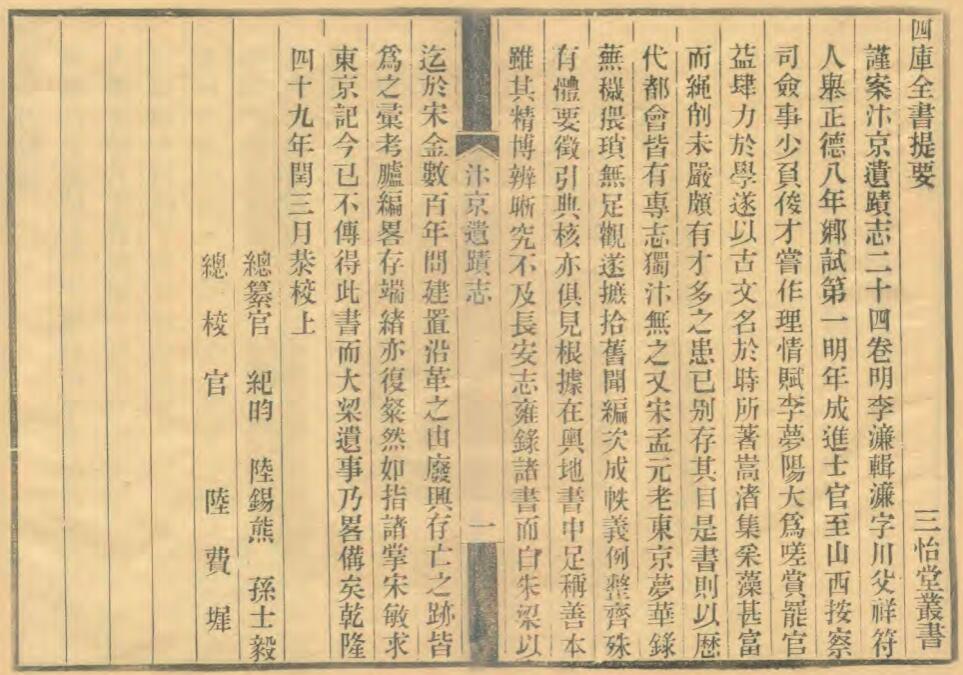 四庫全書提要　三怡堂叢書
謹案汴京遺蹟志二十四卷明李濂輯濂字川父祥符
人舉正德八年鄉試第一明年成進士官至山西按察
司僉事少負俊才嘗作理情賦李夢陽大爲嗟賞罷官
益肆力於學遂以古文名於時所著嵩渚集采藻甚富
而繩削未嚴頗有才多之患已别存其目是書則以歷
代都會皆有專志獨汴無之又宋孟元老東京夢華錄
蕪穢猥瑣無足觀遂摭拾舊聞編次成帙義例整齊殊
有體要徵引典核亦俱見根據在輿地書中足稱善本
雖其精博辨晰究不及長安志雍錄諸書而自朱梁以
汴京遺蹟志　一
迄於宋金數百年間建置沿革之由廢興存亡之跡皆
爲之彙考臚編畧存端緒亦復粲然如指諸掌宋敏求
東京記今已不傳得此書而大梁遺事乃畧備矣乾隆
四十九年閏三月恭校上
總纂官　紀昀　陸錫熊　孫士毅
總校官　陸費墀